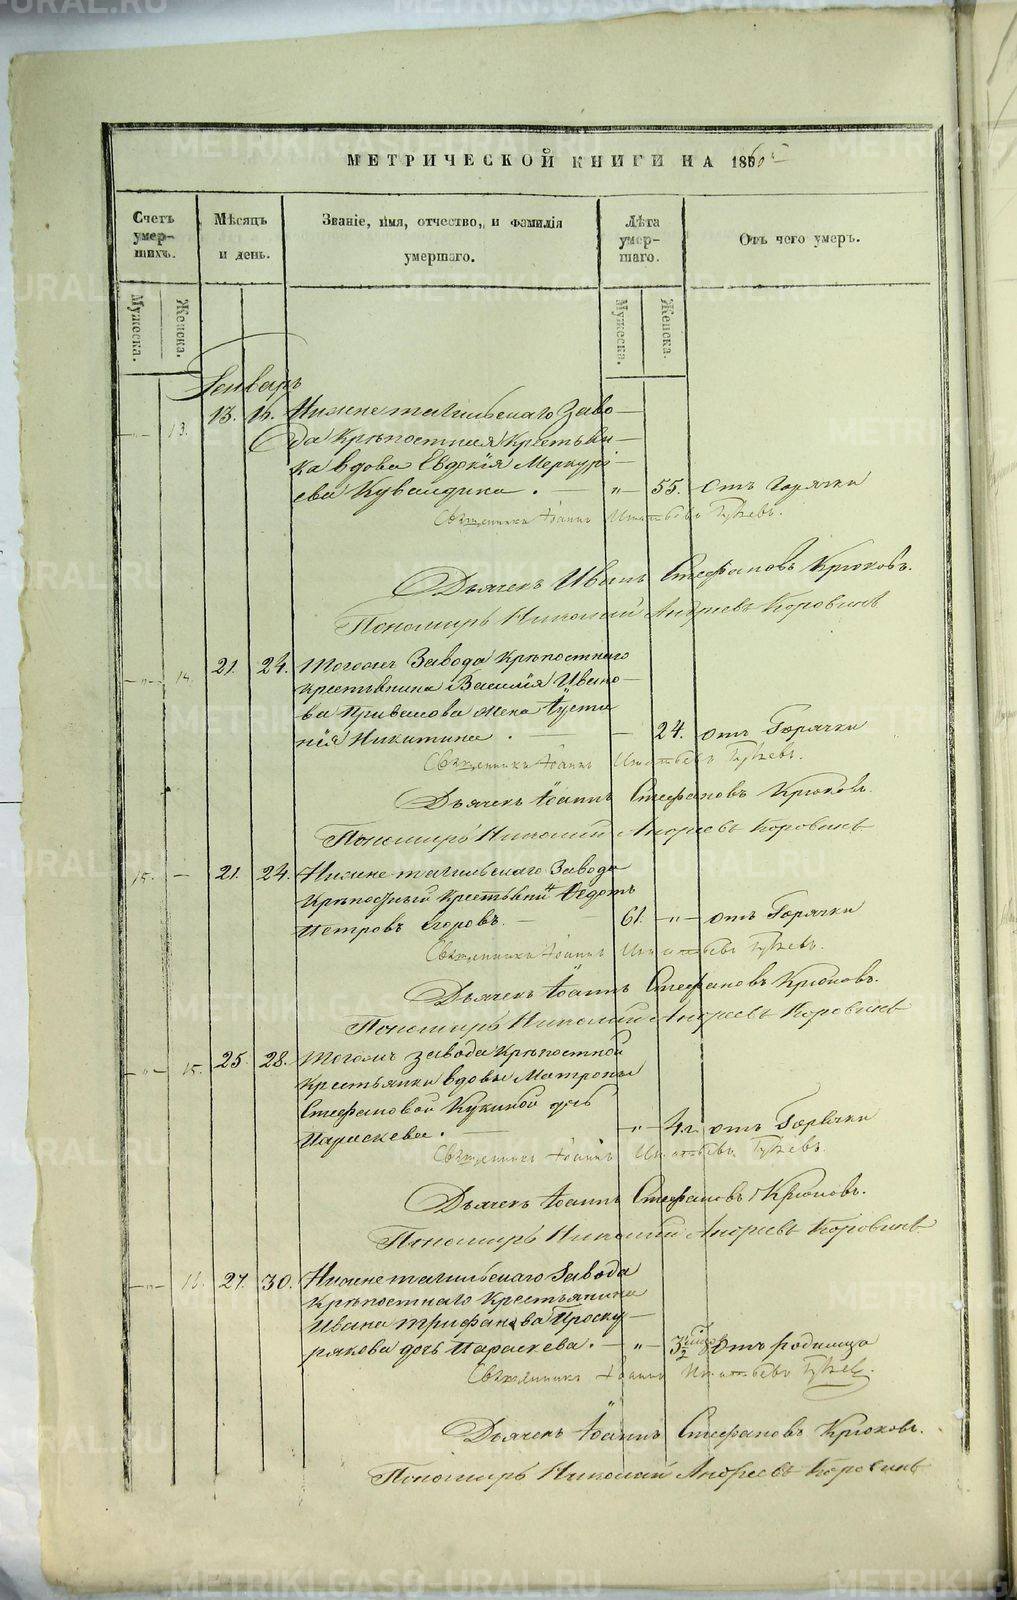 МЕТРИЧЕСКОЙ КНИГИ НА 1860й
Счетъ умер- шихъ.
Мѣсяцъ и день.
Званіе, имя, отчество, и фамилія умершаго.
Лѣта умер- шаго.
Отъ чего умеръ.
Мужеска.
Женска.
Мужеска.
Женска.
Генварь
-"- 13. 13. 16. Нижнетагильскаго Заво-
да крѣпостная крестьян-
ка вдова Евдокія Меркурі-
ева Кувалдина. - " - 55. отъ Горячки
Священникъ Іоаннъ Игнатьевъ
Дьячекъ Иванъ Стефановъ Крюковъ.
Пономарь Николай Андреевъ Коровинъ
-"- 14. 21. 24. Тогожъ Завода крѣпостнаго
крестьянина Василія Ивано-
ва Привалова жена Іусти-
нія Никитина. - 24. отъ Горячки
Священникъ Іоаннъ Игнатьевъ
Дьячекъ Іоаннъ Стефановъ Крюковъ.
Пономарь Николай Андреевъ Коровинъ
15. - 21. 24. Нижнетагильскаго Завода
крѣпостный крестьянинъ Федотъ
Петровъ Егоровъ. - 61. -"- отъ Горячки
Священникъ Іоаннъ Игнатьевъ
Дьячекъ Іоаннъ Стефановъ Крюковъ.
Пономарь Николай Андреевъ Коровинъ
-"- 15. 25. 28. Тогожъ завода крѣпостной
крестьянки вдовы Матроны
Стефановой Кукиной дочь
Параскева. - -"- 4г. отъ Горячки
Священникъ Іоаннъ Игнатьевъ
Дьячекъ Іоаннъ Стефановъ Крюковъ.
Пономарь Николай Андреевъ Коровинъ
-"- 16. 27. 30. Нижнетагильскаго Завода
крѣпостнаго крестьянина
Ивана Трифанова Проску-
рякова дочь Параскева. - " - отъ родимца
Священникъ Іоаннъ Игнатьевъ
Дьячекъ Іоаннъ Стефановъ Крюковъ.
Пономарь Николай Андреевъ Коровинъ
METRIKI.GASO-URAL.RU